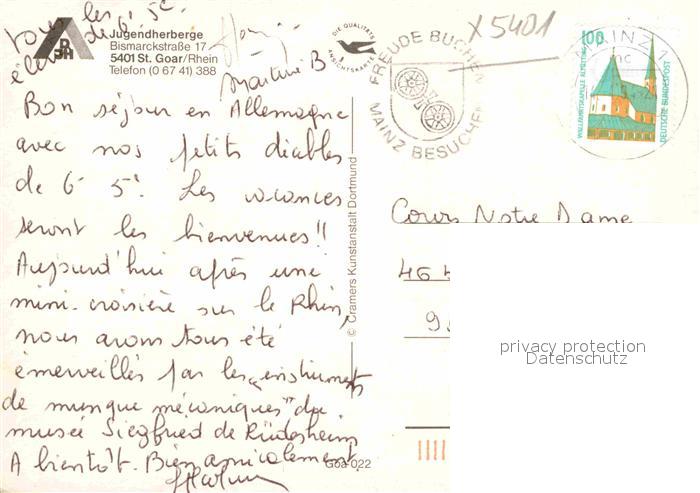 tous les
élèves de 6e 5e.
DJH
Jugendherberge
Bismarckstraße 17
5401 St. Goar/Rhein
Telefon (0 67 41) 388
Martine B
DIE QUALITÄTS
ANSICHTSKARTE
FREUDE BUCHEN
MAINZ BESUCHEN
X 5401
MAINZ 1
100
WALLFAHRTSKAPELLE ALTÖTTING
DEUTSCHE BUNDESPOST
Bon séjour en Allemagne
avec nos petits diables
de 6e 5e. Les vacances
seront les bienvenues!!
Aujourd'hui après une
mini-croisière sur le Rhin,
nous avons tous été
émerveillés par les "instruments
de musique mécaniques" du
musée Siegfried de Rüdesheim
A bientôt. Bien amicalement
© Cramers Kunstanstalt Dortmund
Goa 022
Cours Notre Dame
46
9
privacy protection
Datenschutz